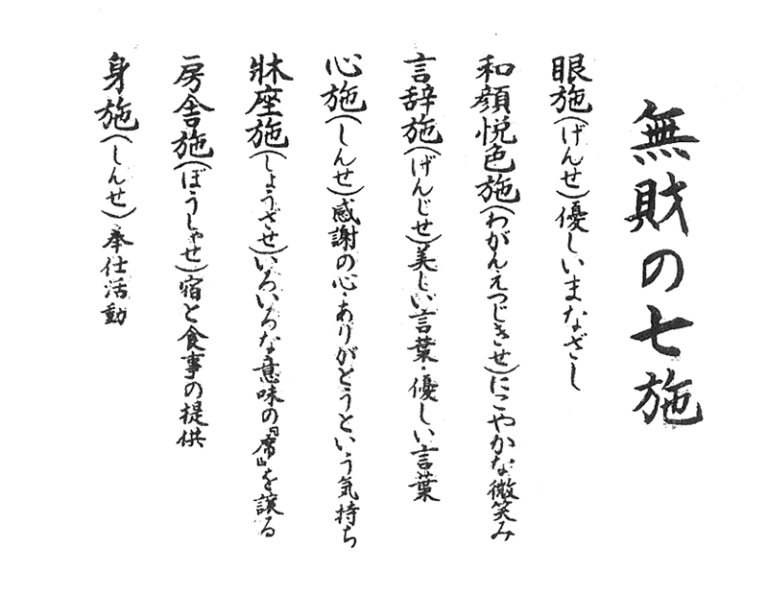 無財の七施
眼施(げんせ)優しいまなざし
和顔悦色施(わがんえつじきせ)にこやかな微笑み
言辞施(げんじせ)美しい言葉・優しい言葉
心施(しんせ)感謝の心・ありがとうという気持ち
牀座施(しょうざせ)いろいろな意味の『席』を譲る
房舎施(ぼうしゃせ)宿と食事の提供
身施(しんせ)奉仕活動